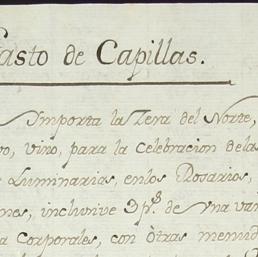 Gasto de Capillas.
Importa la Zera del Norte,
vo, vino, para la Celebracion delas
Luminarias, enlos Rosarios,
nes, inclusive 3 p.s de vna van
a Corporales, con òtras menud